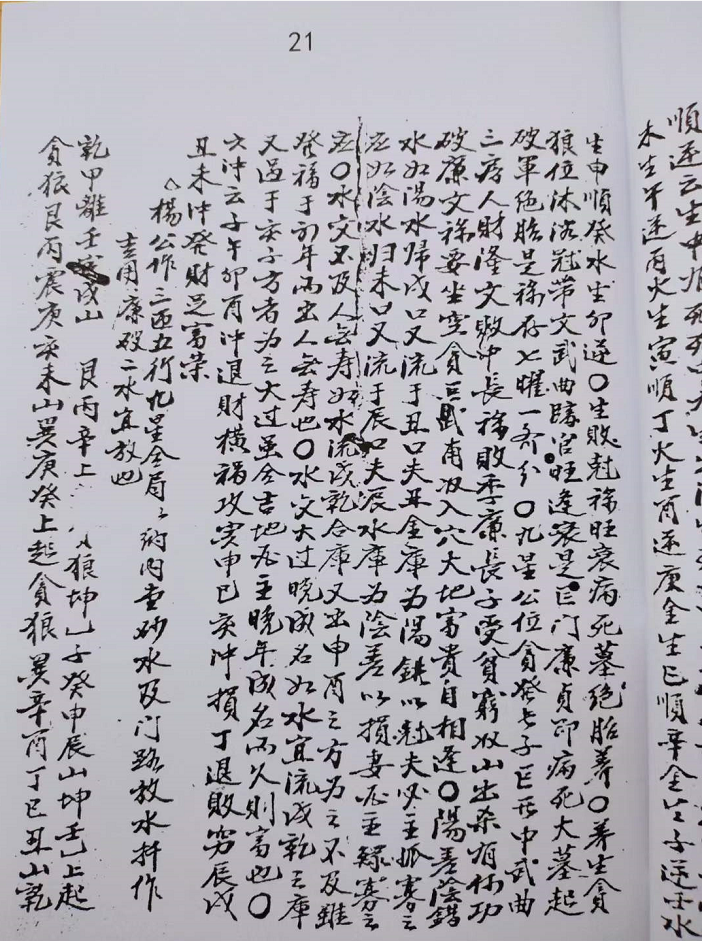 21
順逆云生中
木生午逆丙火生寅順丁火生酉逆庚金生巳順辛金生子逆壬水
生申順癸水生卯逆〇生敗尅祿旺衰病死墓絕胎養〇養生貪
狼位沐浴冠帶文武曲臨官旺逢衰是巨門廉貞即病死大墓起
破軍絕胎是祿存七曜一齊分〇九星公位貪癸長子巨武中武曲
三房人財隆文敗中長祿敗季廉長子受貧窮收山出杀有何功
破廉文祿要坐空貪巨武甫收入穴大地富貴自相逢〇陽差陰錯
水如陽水歸戌口又流于丑口夫丑金庫為陽錯以尅夫必主孤寡云
应如陰水归未口又流于辰口夫辰水庫為陰差以損妻应主鰥寡云
应〇水交不及人無寿如水流戌乾合庫又出申酉之方為之不及雖
癸福于初年而出人無寿也〇水交大过晓成名如水宜流戌乾之庫
又过于亥子方者為之大过虽合吉地应主晚年成名而久則富也〇
六沖云子午卯酉沖退財橫禍攻寅申巳亥沖損丁退敗穷辰戌
丑未沖癸財足富荣
楊公作三西五行九星全局 內查砂水及门路放水扦作
吉用廉破二水宜放也
乾甲離壬寅戌山 艮丙辛上 狼坤乙子癸申辰山坤壬乙上起
貪狼艮丙震庚亥未山巽庚癸上起貪狼巽辛酉丁巳丑山乾